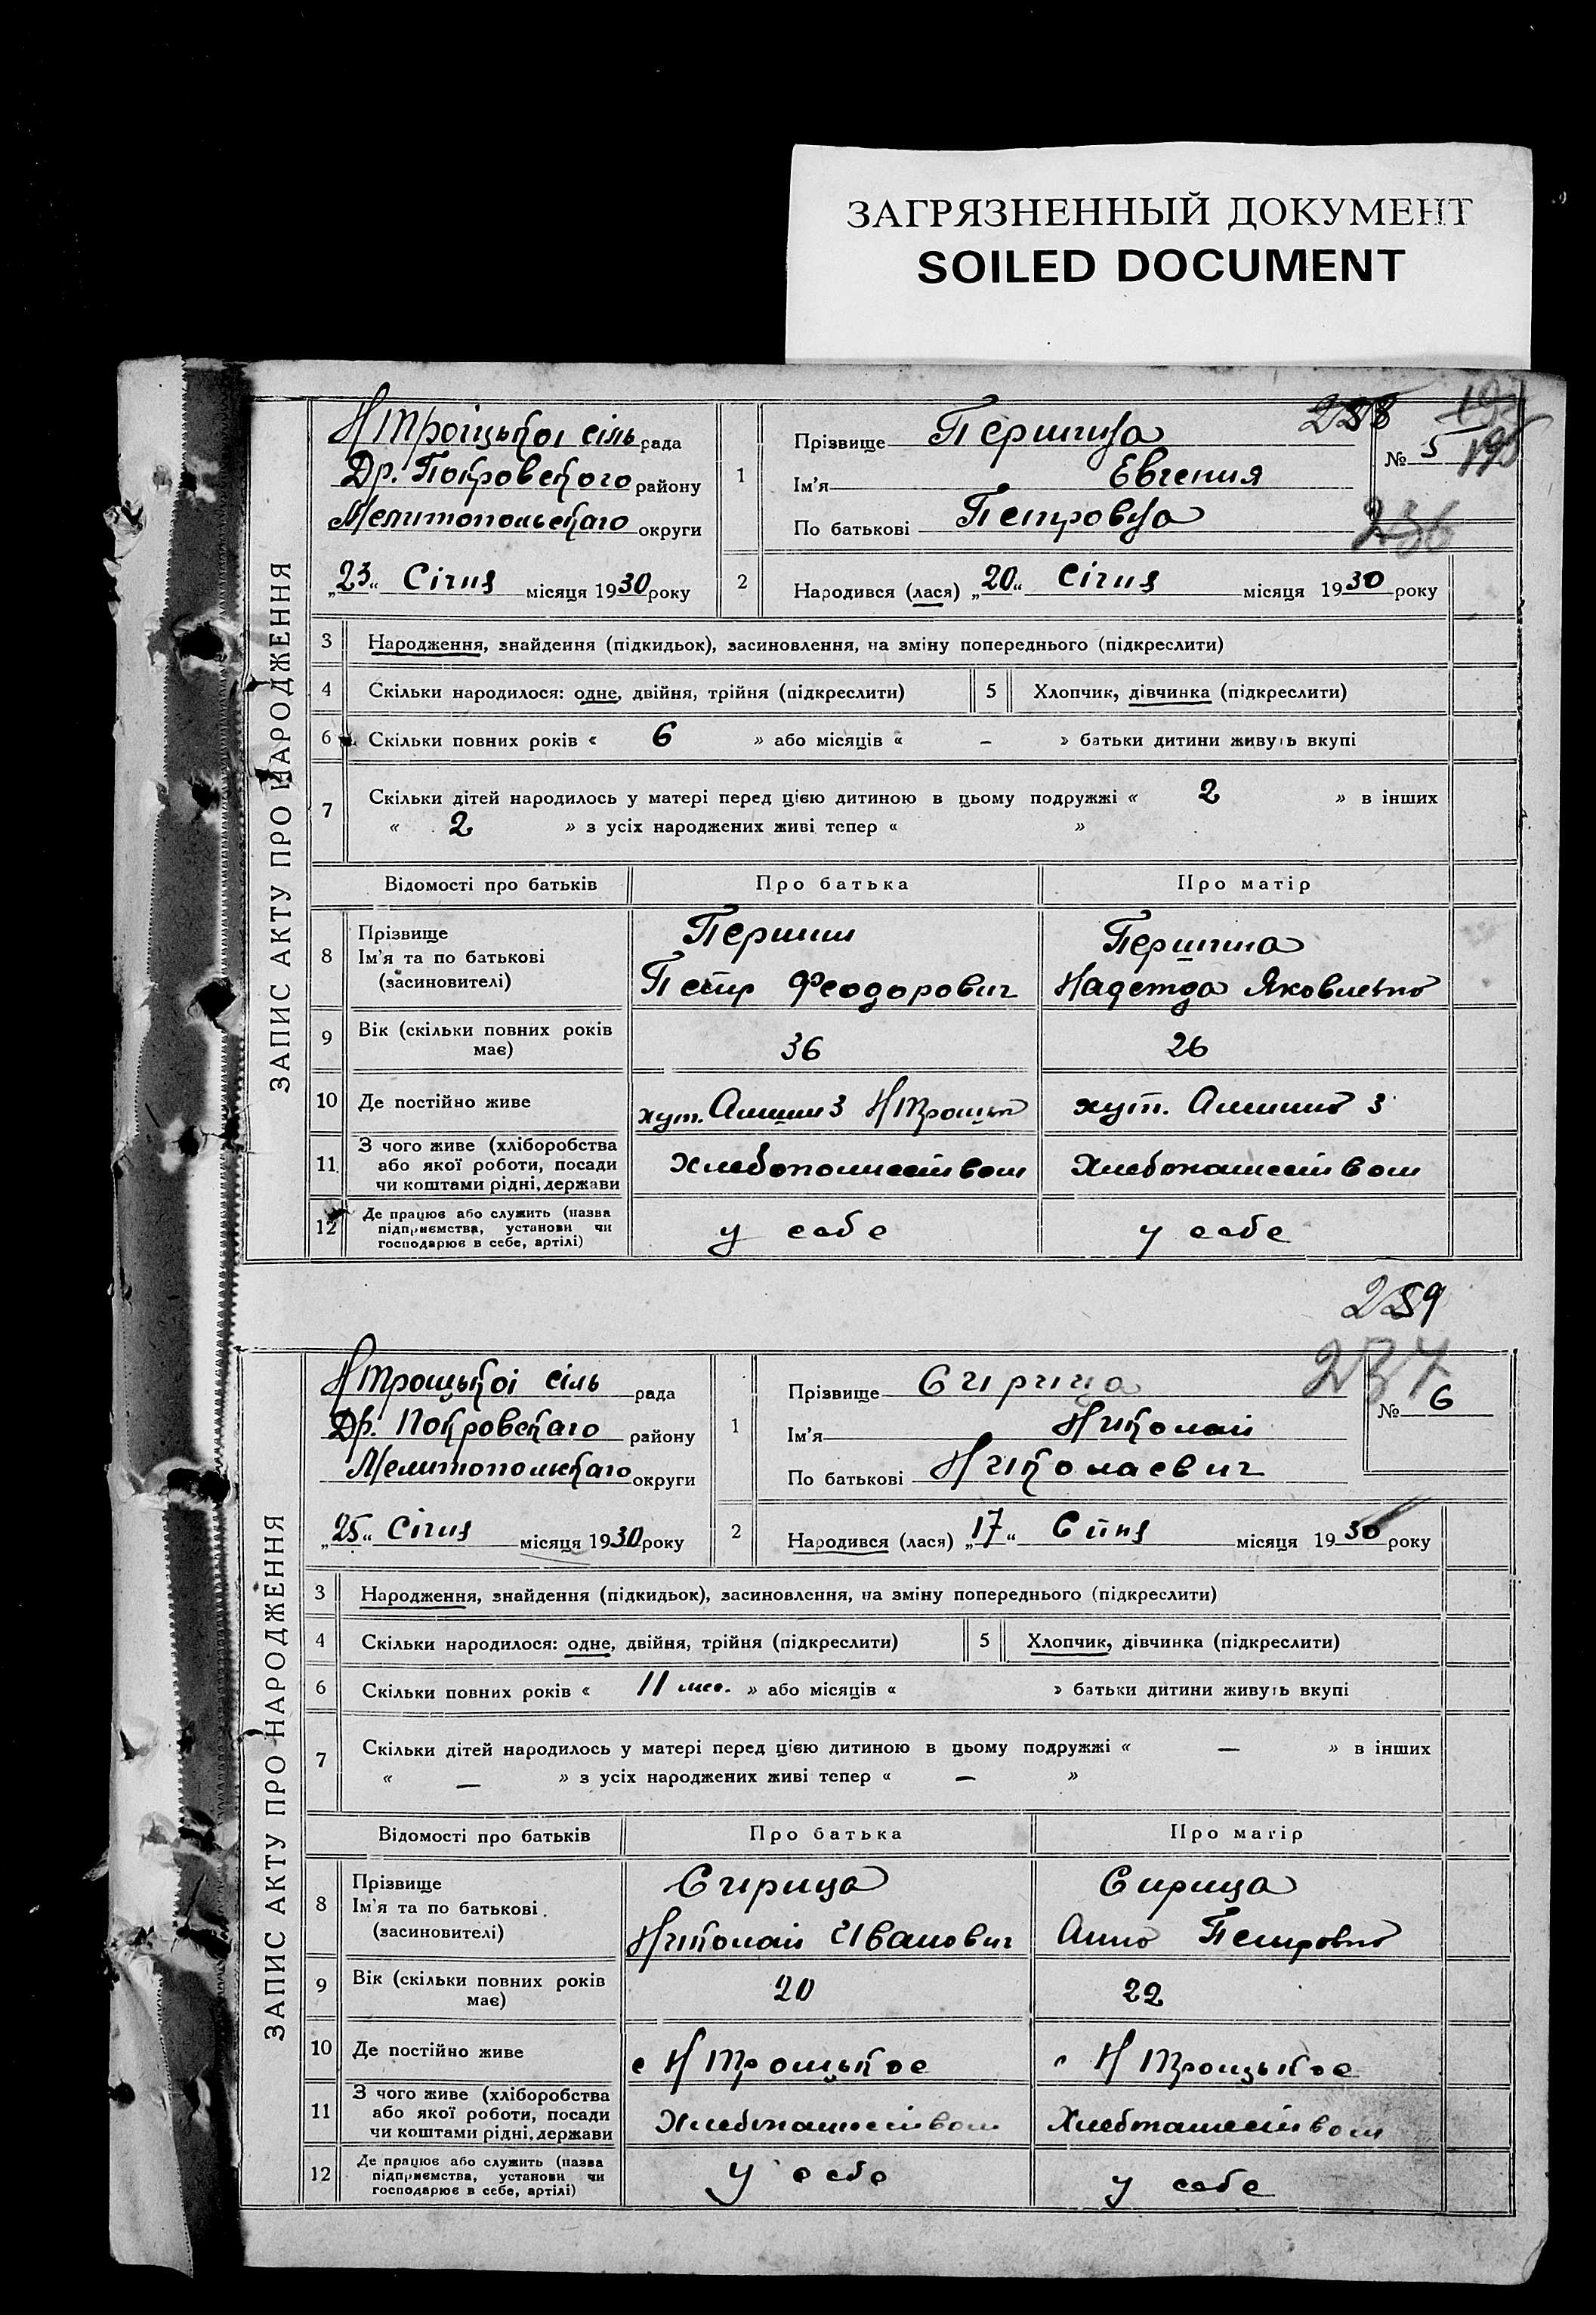 ЗАГРЯЗНЕННЫЙ ДОКУМЕНТ
SOILED DOCUMENT
ЗАПИС АКТУ ПРО НАРОДЖЕННЯ
НТроіцькоі сіль рада
Др. Покровского району
Мелитопольскаго округи
„23“ Січня місяця 1930 року
258
195
236
№ 5
1 Прізвище Першина
Ім'я Евгения
По батькові Петровна
2 Народився (лася) „20“ Січня місяця 1930 року
3 Народження, знайдення (підкидьок), засиновлення, на зміну попереднього (підкреслити)
4 Скільки народилося: одне, двійня, трійня (підкреслити) 5 Хлопчик, дівчинка (підкреслити)
6 Скільки повних років « 6 » або місяців « – » батьки дитини живуть вкупі
7 Скільки дітей народилось у матері перед цією дитиною в цьому подружжі « 2 » в інших
« 2 » з усіх народжених живі тепер « »
Відомості про батьків Про батька Про матір
8 Прізвище Ім'я та по батькові (засиновителі)
Першин Першина
Петр Феодорович Надежда Яковлевна
9 Вік (скільки повних років має) 36 26
10 Де постійно живе хут. 3 НТроицьк хут. 3
11 З чого живе (хліборобства або якої роботи, посади чи коштами рідні, держави Хлебопашеством Хлебопашеством
12 Де працює або служить (назва підприємства, установи чи господарює в себе, артілі) у себе у себе
259
237
ЗАПИС АКТУ ПРО НАРОДЖЕННЯ
НТроицькоі сіль рада
Др. Покровскаго району
Мелитопольскаго округи
„25“ Січня місяця 1930 року
№ 6
1 Прізвище Сирица
Ім'я Николай
По батькові Николаевич
2 Народився (лася) „17“ Січня місяця 1930 року
3 Народження, знайдення (підкидьок), засиновлення, на зміну попереднього (підкреслити)
4 Скільки народилося: одне, двійня, трійня (підкреслити) 5 Хлопчик, дівчинка (підкреслити)
6 Скільки повних років « 11 мес. » або місяців « » батьки дитини живуть вкупі
7 Скільки дітей народилось у матері перед цією дитиною в цьому подружжі « – » в інших
« – » з усіх народжених живі тепер « – »
Відомості про батьків Про батька Про матір
8 Прізвище Ім'я та по батькові (засиновителі)
Сирица Сирица
Николай Иванович Анна Петровна
9 Вік (скільки повних років має) 20 22
10 Де постійно живе с НТроицькое с НТроицькое
11 З чого живе (хліборобства або якої роботи, посади чи коштами рідні, держави Хлебопашеством Хлебопашеством
12 Де працює або служить (назва підприємства, установи чи господарює в себе, артілі) у себе у себе